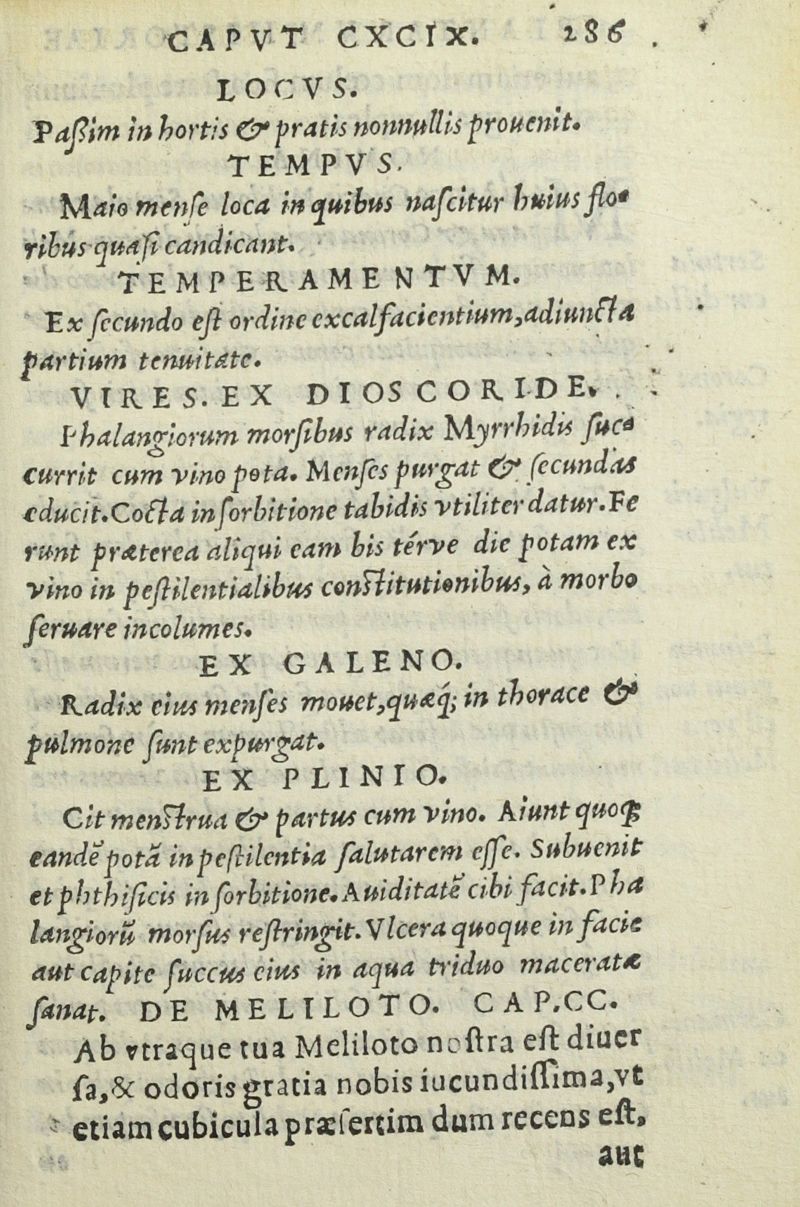 CAPVT CXCIX. 286.
LOCVS.
Paßim in hortis & pratis nonnullis prouenit.
TEMPVS.
Maio menſe loca in quibus naſcitur huius flo-
ribus quaſi candicant.
TEMPERAMENTVM.
Ex ſecundo eſt ordine excalfacientium, adiuncta
partium tenuitate.
VIRES. EX DIOSCORIDE.
Phalangiorum morſibus radix Myrrhidis ſuc-
currit cum vino pota. Menſes purgat & ſecundas
educit. Cocta in ſorbitione tabidis vtiliter datur. Fe
runt præterea aliqui eam bis térve die potam ex
vino in peſtilentialibus conſtitutionibus, à morbo
ſeruare incolumes.
EX GALENO.
Radix eius menſes mouet, quæq́; in thorace &
pulmone ſunt expurgat.
EX PLINIO.
Cit menſtrua & partus cum vino. Aiunt quoq;
eandē potā in peſtilentia ſalutarem eſſe. Subuenit
et phthiſicis in ſorbitione. Auiditatē cibi facit. Pha
langiorū morſus reſtringit. Vlcera quoque in facie
aut capite ſuccus eius in aqua triduo maceratæ
ſanat. DE MELILOTO. CAP. CC.
Ab vtraque tua Meliloto noſtra eſt diuer
ſa, & odoris gratia nobis iucundiſſima, vt
etiam cubicula præſertim dum recens eſt,
aut